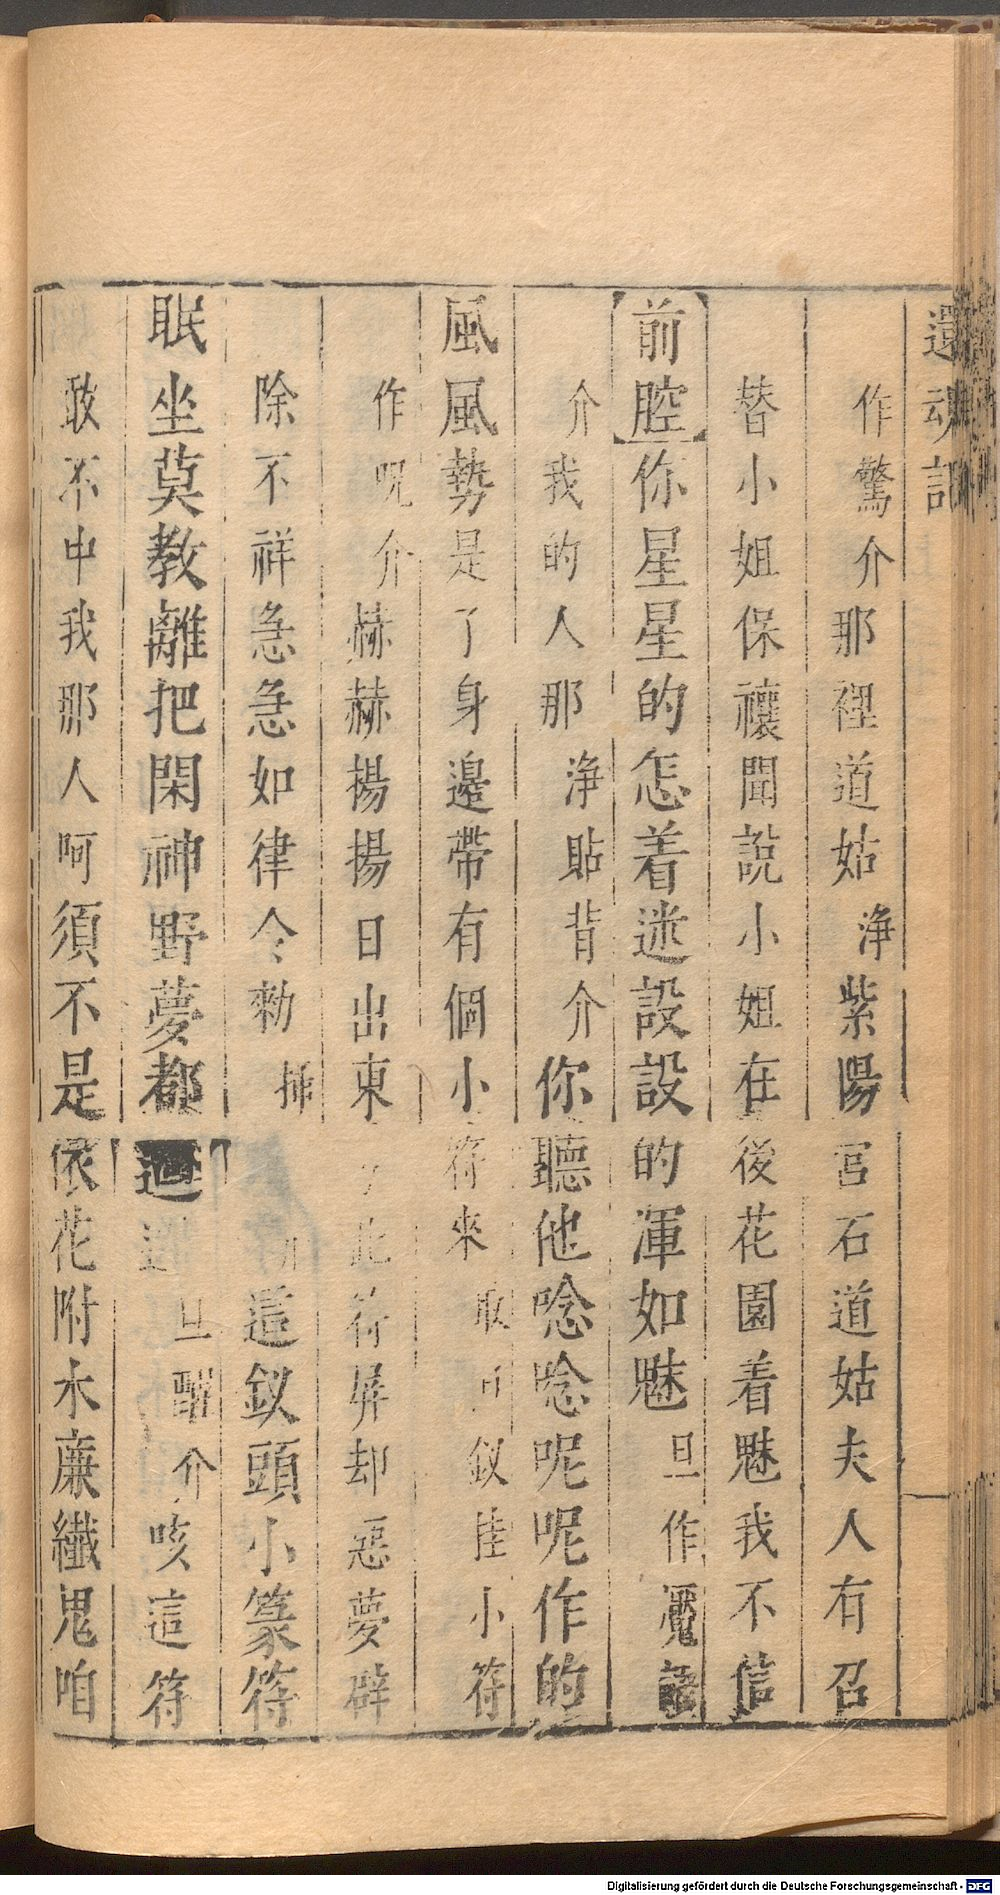 還魂記
作驚介那裡道姑浄紫陽宮石道姑夫人有召
替小姐保禳聞說小姐在後花園着魅我不信
前腔你星星的怎着迷設設的渾如魅旦作魘語
介我的人那浄貼背介你聽他唸唸呢呢作的
風風勢是了身邊帶有個小符來取釵挂小符
作呪介赫赫揚揚日出東方此符屏却惡夢辟
除不祥急急如律令勑揷這釵頭小篆符
眠坐莫教離把閑神野夢都廻旦醒介咳這符
敢不中我那人呵須不是依花附木廉纖鬼咱
Digitalisierung gefördert durch die Deutsche Forschungsgemeinschaft - DFG